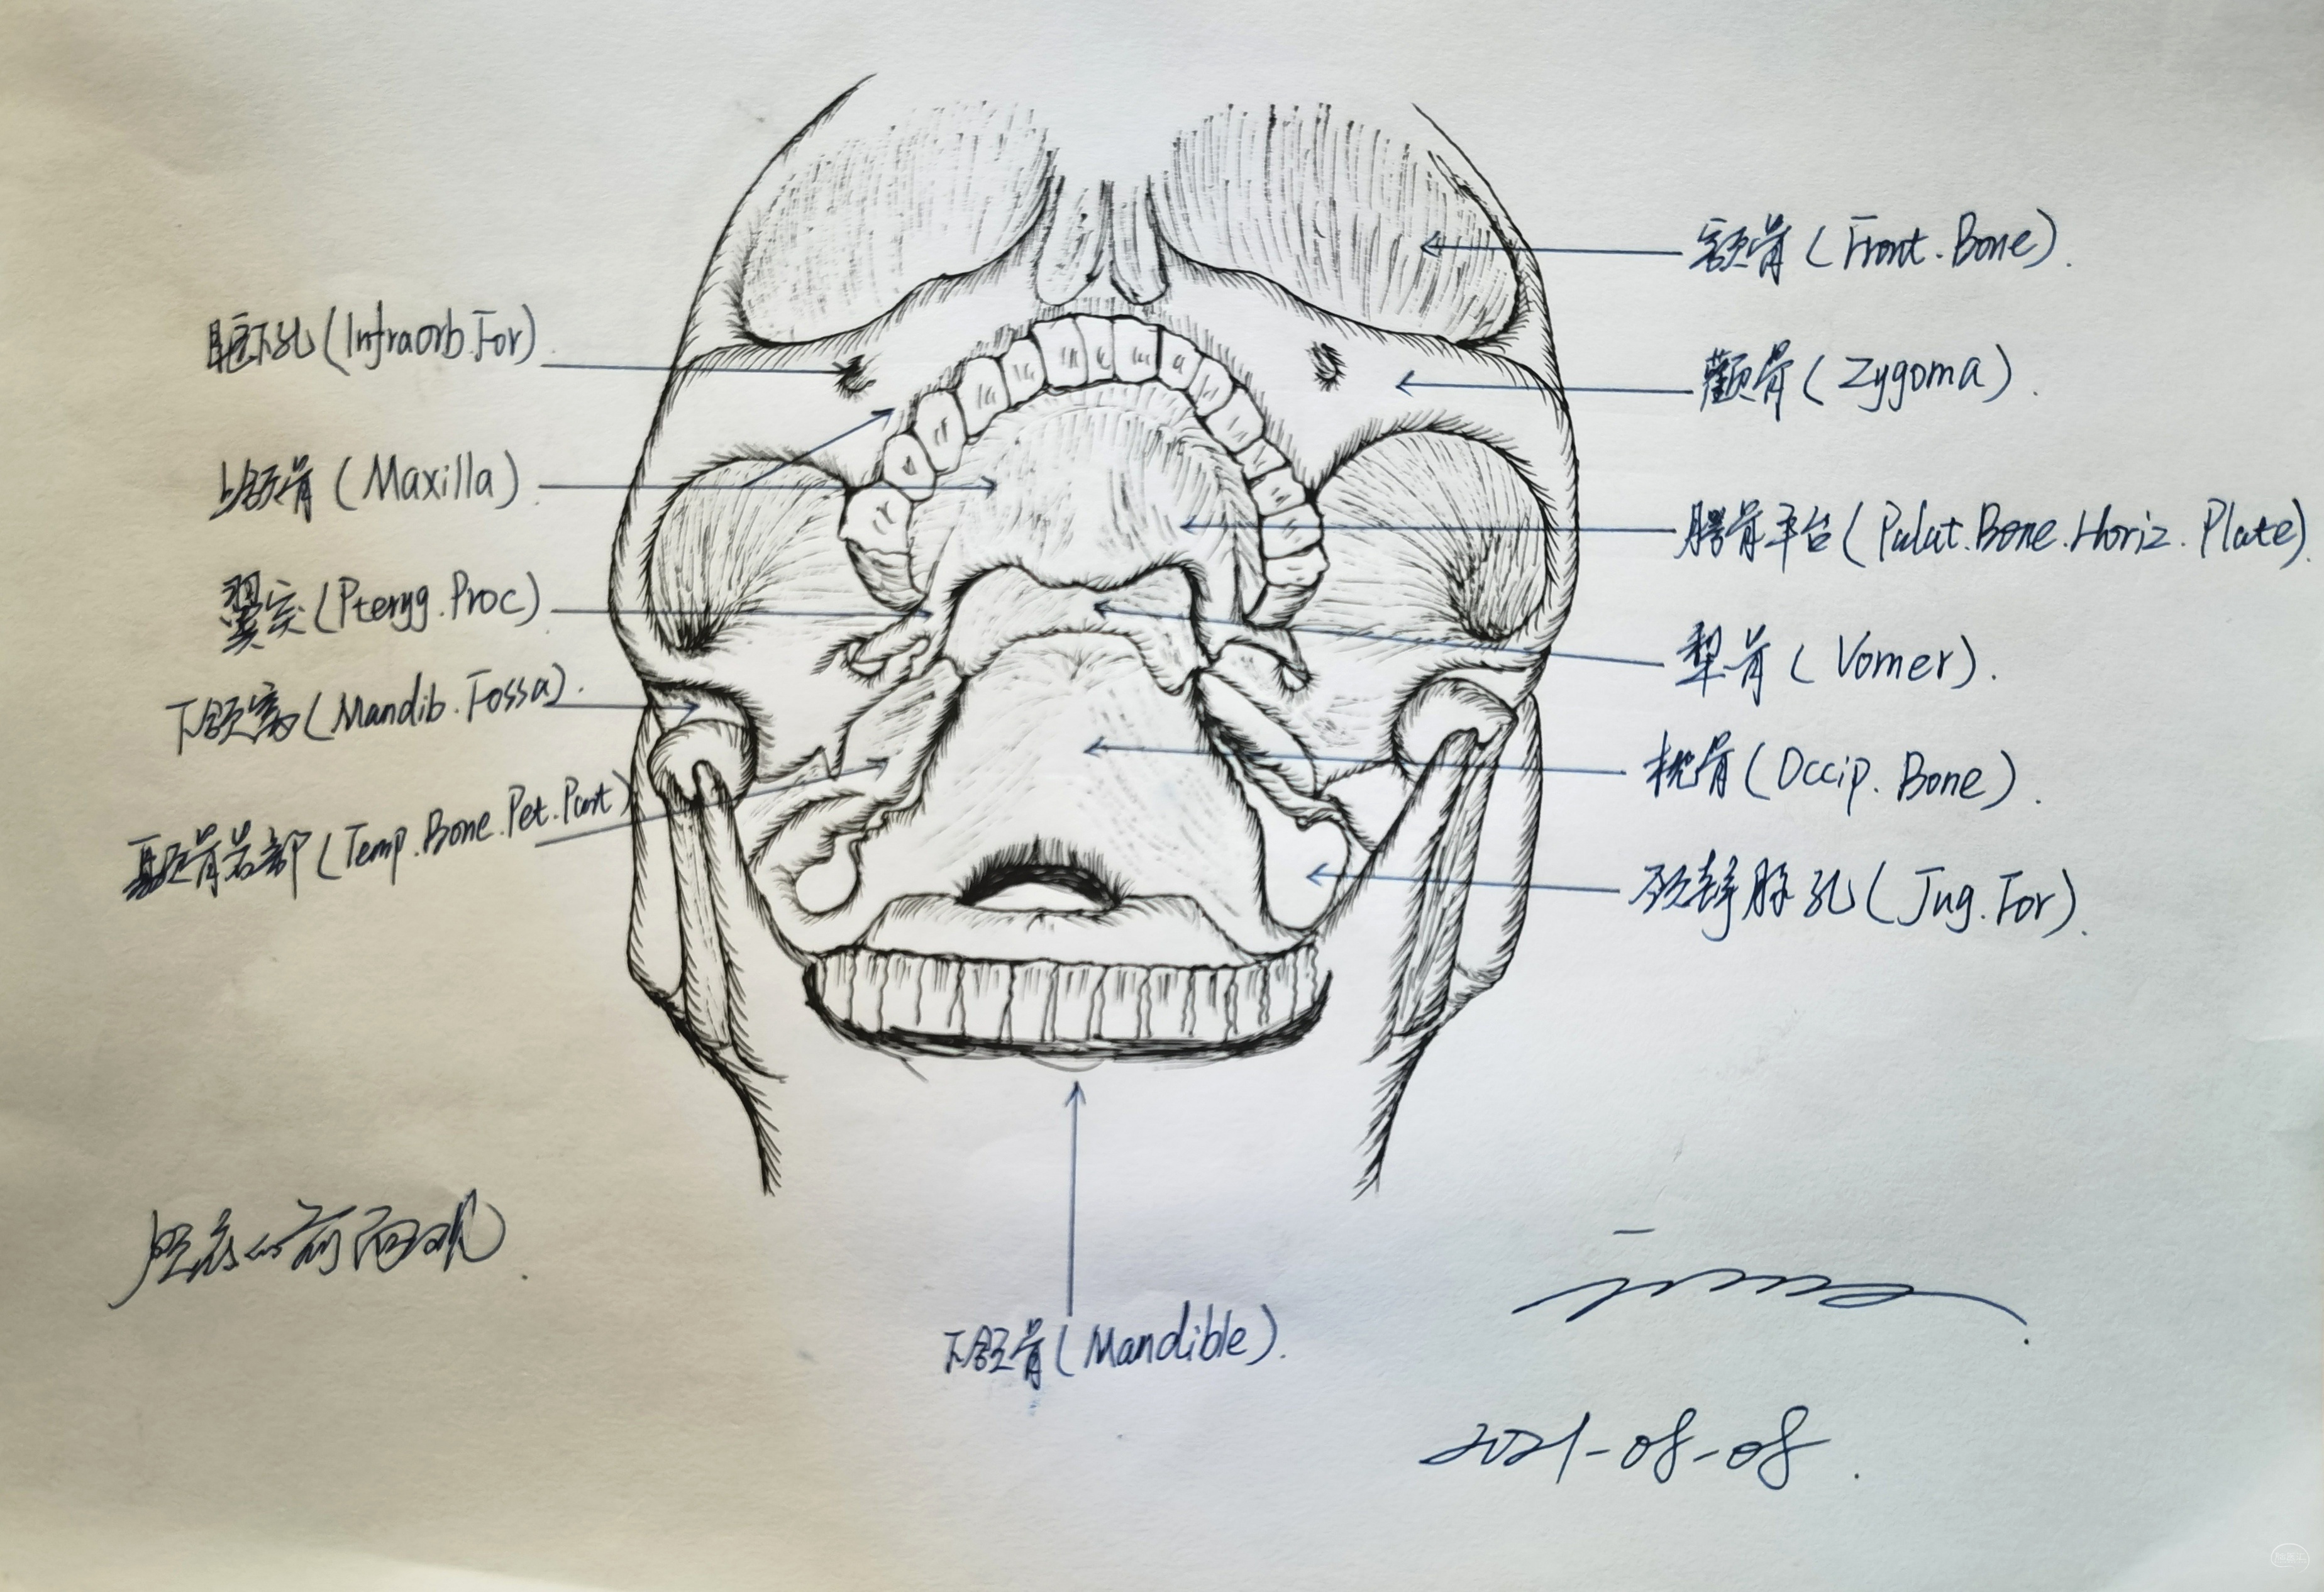 眶下孔(Infraorb.For).
上颌骨(Maxilla).
翼突(Pteryg.Proc).
下颌窝(Mandib.Fossa).
颞骨岩部(Temp.Bone.Pet.Part)
额骨(Front.Bone).
颧骨(Zygoma).
腭骨平台(Palat.Bone.Horiz.Plate).
犁骨(Vomer).
枕骨(Occip.Bone).
颈静脉孔(Jug.For).
下颌骨(Mandible).
前面观.
2021-08-08.